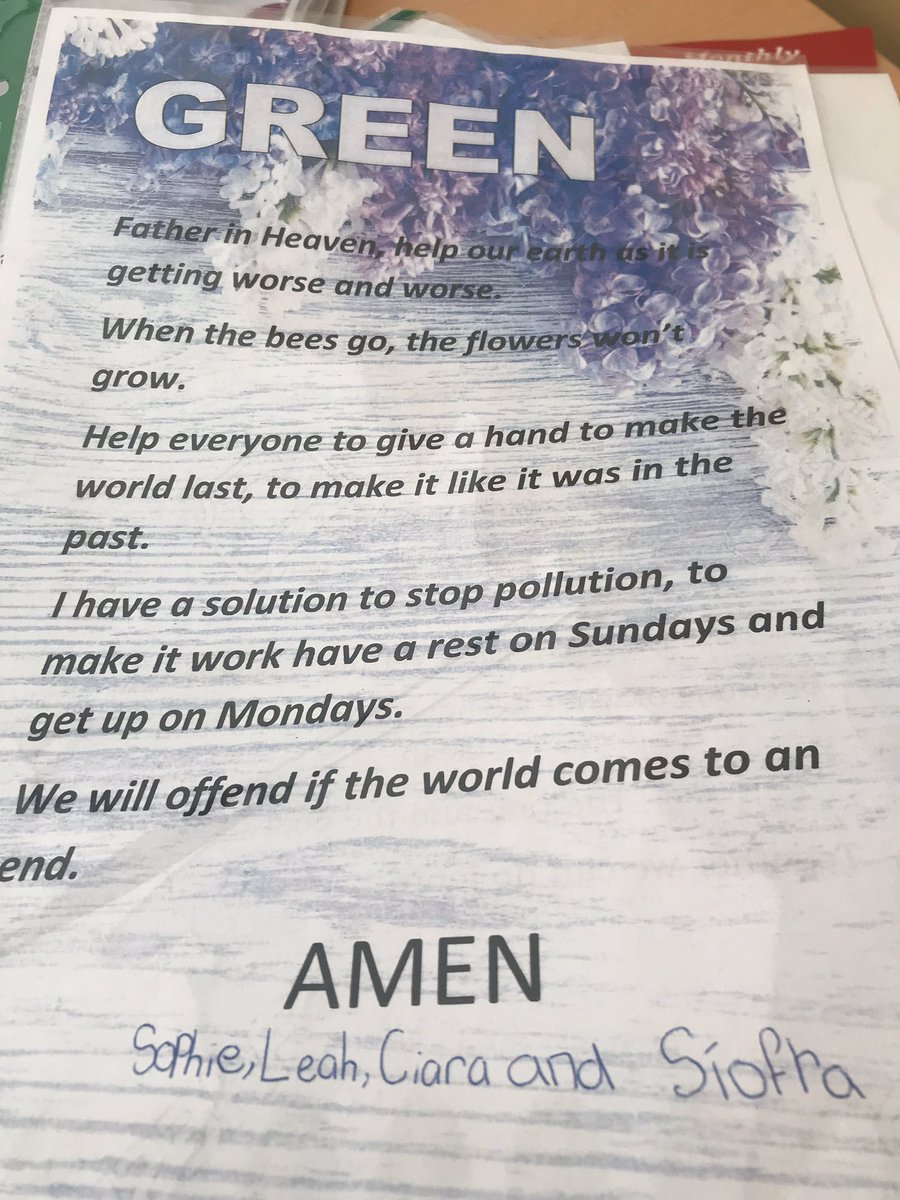 Monthly
GREEN
Father in Heaven, help our earth as it is
getting worse and worse.
When the bees go, the flowers won't
grow.
Help everyone to give a hand to make the
world last, to make it like it was in the
past.
I have a solution to stop pollution, to
make it work have a rest on Sundays and
get up on Mondays.
We will offend if the world comes to an
end.
AMEN
Sophie, Leah, Ciara and Síofra